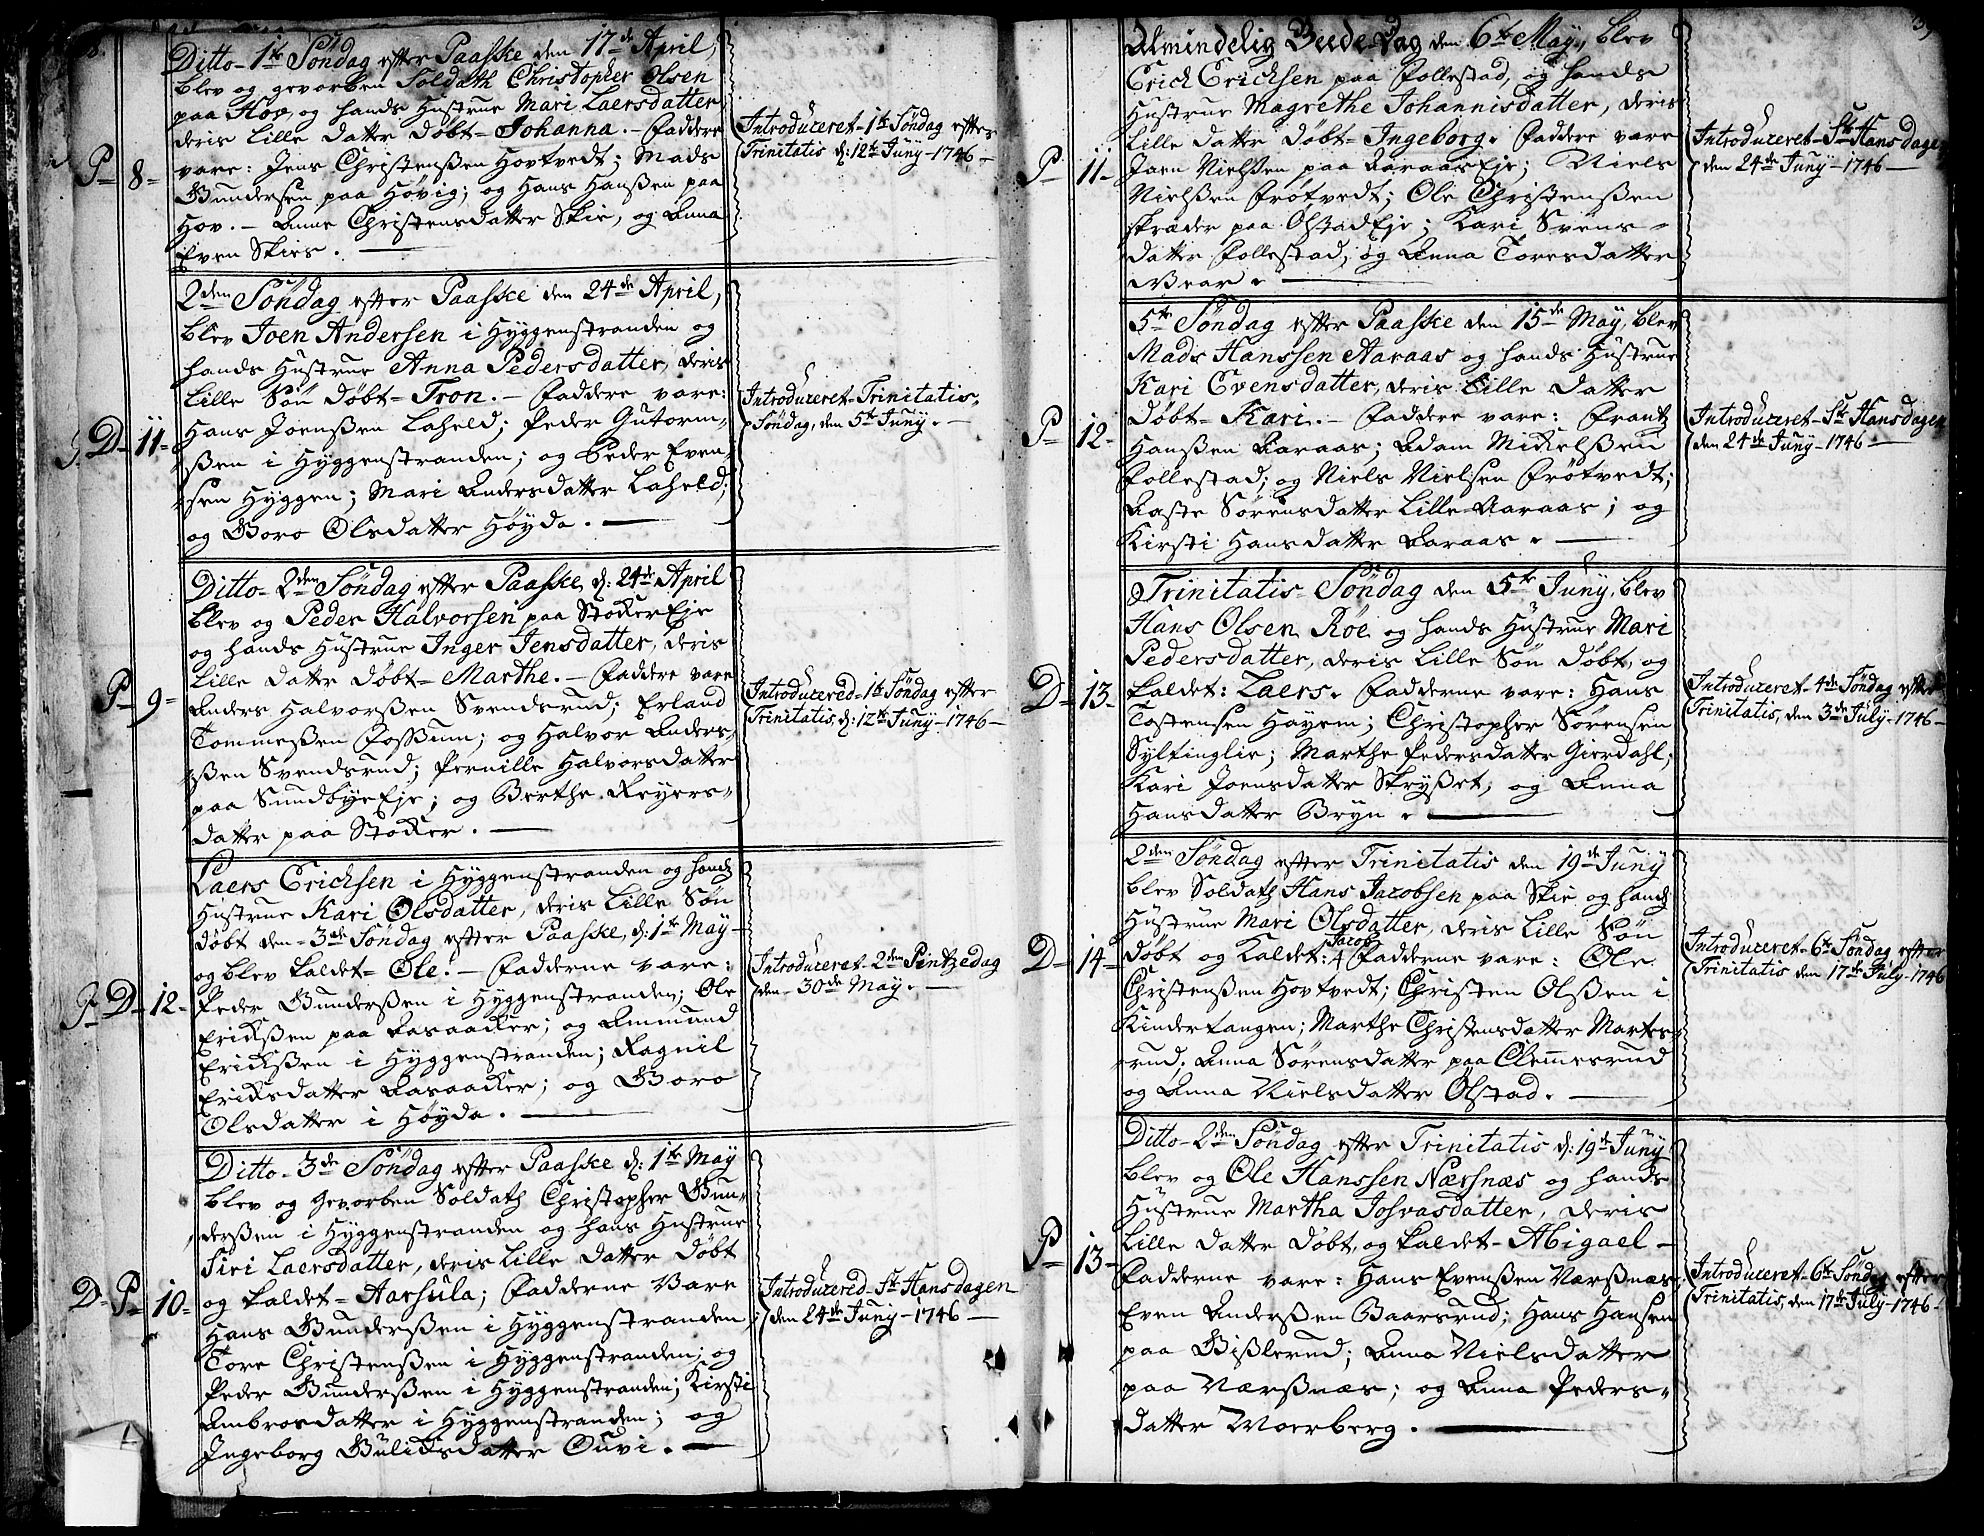 Ditto - 1te Söndag efter Paaske den 17de April,
blev og gevorben Soldath Christopher Olsen
paa Hov, og hands Hustrue Mari Laersdatter
deris Lille Datter Döbt - Johanna. - Faddere
vare: Jens Christenßen Hovtvedt; Mads
Gundersen paa Høvig; og Hans Hanßen paa
Hov. - Anne Christensdatter Skie, og Anna
Even Skies.
P - 8 -
Introduceret - 1te Söndag efter
Trinitatis d: 12te Juny - 1746 -
2den Söndag efter Paaske den 24de April,
blev Joen Andersen i Hyggenstranden og
hands Hustrue Anna Pedersdatter, deris
Lille Sön Döbt - Tron. - Faddere vare:
Hans Joenßen Laheld; Peder Gutorm-
ßen i Hyggenstranden; og Peder Even-
sen Hyggen; Mari Andersdatter Laheld;
og Goro Olsdatter Høyda.
D - 11 -
Introduceret - Trinitatis
Söndag, den 5te Juny. -
Ditto - 2den Söndag efter Paaske, d: 24de April
blev og Peder Halvorsen paa Stocker Eje
og hands Hustrue Inger Jensdatter, deris
Lille Datter Döbt - Marthe. - Faddere vare
Anders Halvorßen Svendsrud; Erland
Tommeßen Foßum; og Halvor Anders-
ßen Svendsrud; Pernille Halvorsdatter
paa Sundbye Eje; og Berthe Reyers-
datter paa Stocker.
P - 9 -
Introducered - 1te Söndag efter
Trinitatis, d: 12te Juny - 1746 -
Laers Ericksen i Hyggenstranden og hands
Hustrue Kari Olsdatter, deris Lille Sön
Döbt den - 3de Söndag efter Paaske, d: 1te May -
og blev kaldet - Ole. - Fadderne vare:
Peder Gunderßen i Hyggenstranden; Ole
Erickßen paa Aasaacker; og Ammund
Erickßen i Hyggenstranden; Ragnil
Ericksdatter Aasaacker; og Goro
Olsdatter i Høyda.
D - 12 -
Introduceret - 2den Pintzedag
den - 30de May. -
Ditto - 3de Söndag efter Paaske d: 1te May
blev og Gevorben Soldath Christopher Gun-
derßen i Hyggenstranden og hans Hustrue
Siri Laersdatter, deris Lille Datter Döbt
og kaldet - Aarsüla; Fadderne Vare
Hans Gunderßen i Hyggenstranden
Tore Christenßen i Hyggenstranden; og
Peder Gunderßen i Hyggenstranden; Kirsti
Ambrosdatter i Hyggenstranden; og
Ingeborg Gulicksdatter Ouvi.
D - P - 10 -
Introducered - St Hansdagen
den 24de Juny - 1746 -
Almindelig Beede-Dag den 6te May, blev
Erick Ericksen paa Follestad, og hands
Hustrue Magrethe Johannisdatter, deris
Lille Datter Döbt - Ingeborg. Faddere vare
Joen Nielßen paa Aaraas Eje; Niels
Nielßen Frötvedt; Ole Christenßen
skræder paa Olstad Eje; Kari Svens-
datter Follestad, og Anna Toresdatter
Wear.
P - 11 -
Introduceret - St Hansdagen
den 24de Juny - 1746 -
5te Söndag efter Paaske den 15de May, blev
Mads Hanssen Aaraas og hands Hustrue
Kari Evensdatter, deris Lille Datter
Döbt - Kari. - Faddere vare: Frantz
Hanßen Aaraas; Adam Mickelßen
Follestad; og Niels Nielsen Frötvedt;
Aaste Sörensdatter Lille Aaraas; og
Kirsti Hansdatter Aaraas.
P - 12 -
Introduceret - St Hansdagen
den 24de Juny - 1746 -
Trinitatis - Söndag den 5te Juny, blev
Hans Olsen Röe og hands Hustrue Mari
Pedersdatter, deris Lille Sön Döbt, og
kaldet: Laers. Fadderne vare: Hans
Tostensen Høyem; Christopher Sörensen
Syltinglie; Marthe Pedersdatter Gierdahl;
Kari Joensdatter Skryßet, og Anna
Hansdatter Bryn.
D - 13 -
Introduceret - 4de Söndag efter
Trinitatis, den 3de July - 1746 -
2den Söndag efter Trinitatis den 19de Juny
blev Soldath Hans Jacobsen paa Skie og hands
Hustrue Mari Olsdatter, deris Lille Sön
Döbt og Kaldet: Jacob Fadderne vare: Ole
Christenßen Hovtvedt; Christen Olßen i
Kindertangen; Marthe Christensdatter Martes-
rud; Anna Sörensdatter paa Clemesrud
og Anna Nielsdatter Olstad.
D - 14 -
Introduceret - 6te Söndag efter
Trinitatis den 17de July - 1746
Ditto - 2den Söndag efter Trinitatis d: 19de Juny
blev og Ole Hanssen Nærsnæs og hands
Hustrue Martha Josvasdatter, deris
Lille Datter Döbt, og kaldet - Abigael -
Fadderne vare: Hans Evenßen Nærßnæs
Even Anderßen Baarsrud; Hans Hansen
paa Bißlerud; Anna Nielsdatter
paa Nærßnæs; og Anna Peders-
datter Morberg.
P - 13 -
Introduceret - 6te Söndag efter
Trinitatis, den 17de July - 1746 -